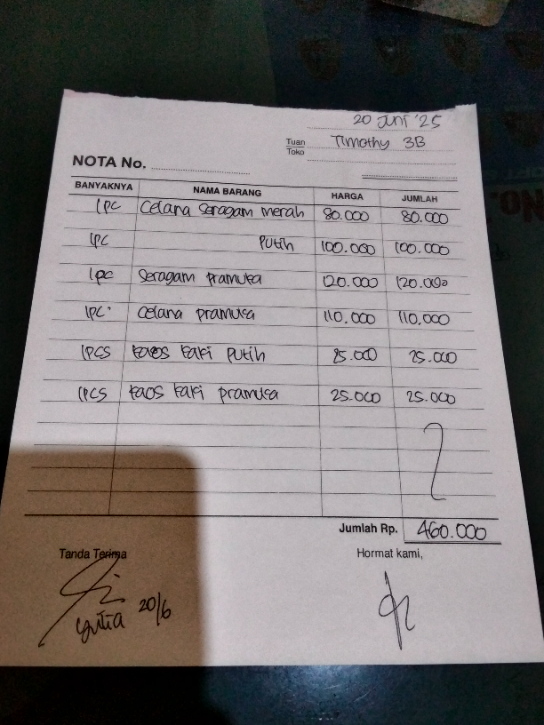 20 Juni '25
Tuan Timothy 3B
Toko
NOTA No.
BANYAKNYA NAMA BARANG HARGA JUMLAH
1 PC Celana Seragam merah 80.000 80.000
1 PC Putih 100.000 100.000
1 pc Seragam Pramuka 120.000 120.000
1 PC Celana pramuka 110.000 110.000
1 PCS kaos kaki putih 25.000 25.000
1 PCS kaos kaki pramuka 25.000 25.000
Jumlah Rp. 460.000
Tanda Terima Hormat kami,
20/6